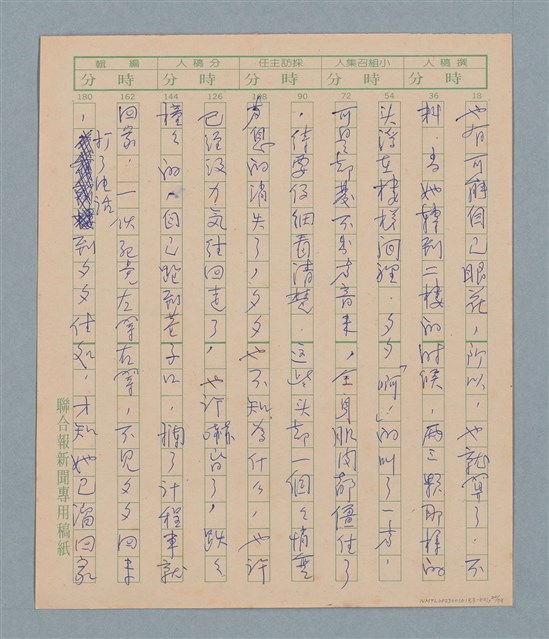 撰稿人 小組召集人 採訪主任 分稿人 編輯
時 分 時 分 時 分 時 分 時 分
18 36 54 72 90 108 126 144 162 180
也有可能自己眼花，所以，也就算了。不
料，當她轉到二樓的時候，兩三顆那樣的
頭浮在樓梯間裡，夕夕「啊」的叫了一聲，
可是却發不出聲音來，全身肌肉都僵住了
，待要仔細看清楚，這些頭却一個個悄無
聲息的消失了，夕夕也不知為什么，也許
已經沒力氣往回走了，也许嚇昏了，跌跌
撞撞的，自己跑到巷子口，攔了計程車就
回家，一伙孤竟左穿右穿，不見夕夕回來
，打了電話到夕夕住处，才知她已溜回家
聯合報新聞專用稿紙